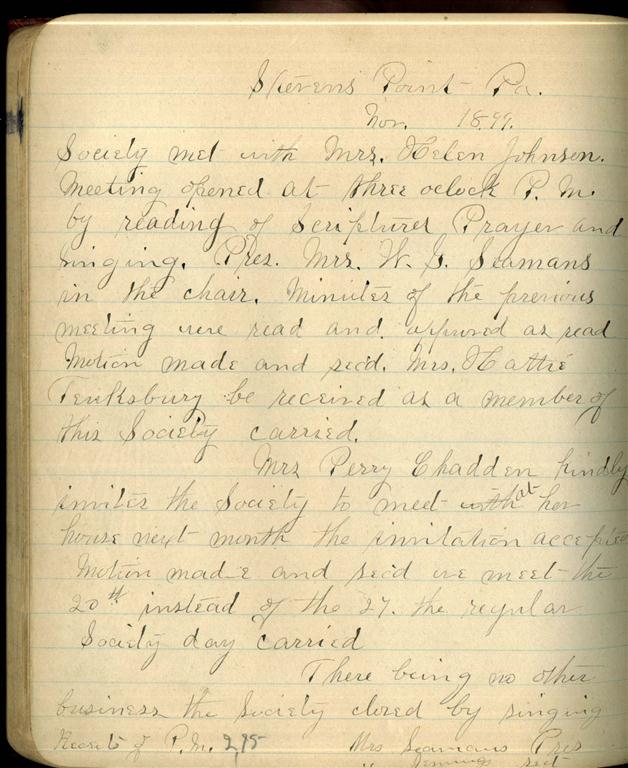 Stevens Point Pa.
Nov. 1899.
Society met with Mrs. Helen Johnson.
Meeting opened at three oclock P.M.
by reading of Scriptures Prayer and
singing. Pres. Mrs. W. G. Seamans
in the chair. Minutes of the previous
meeting were read and approved as read
Motion made and sec'd. Mrs. Hattie
Tewksbury be received as a member of
this Society carried.
Mrs Perry Chadden kindly
invites the Society to meet with at her
house next month the invitation accepted
Motion made and sec'd we meet the
20th instead of the 27. the regular
Society day carried
There being no other
business the Society closed by singing
Receits of P.M. 2,95 Mrs Seamans Pres
" Sect